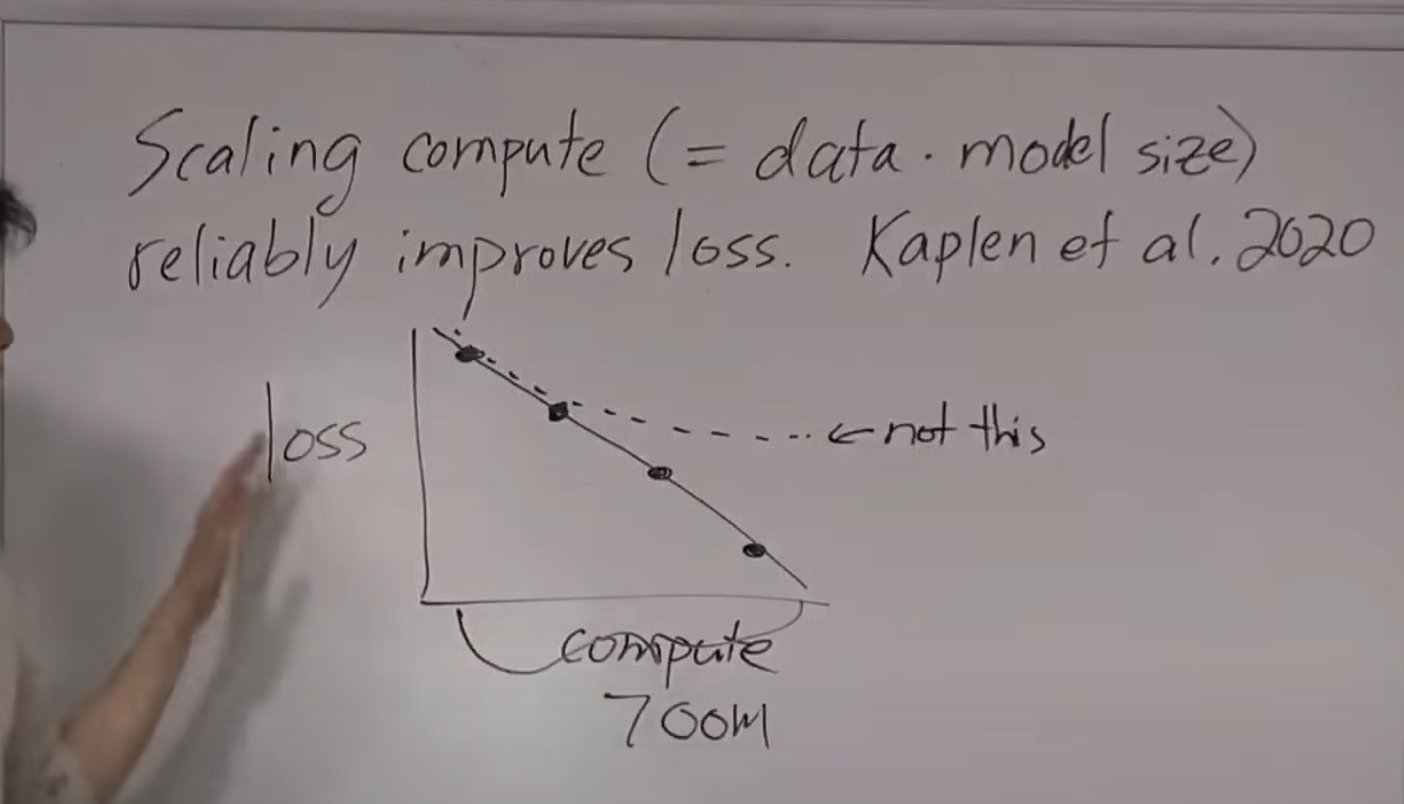 Scaling compute (= data · model size)
reliably improves loss. Kaplen et al. 2020
loss
← not this
compute
700M